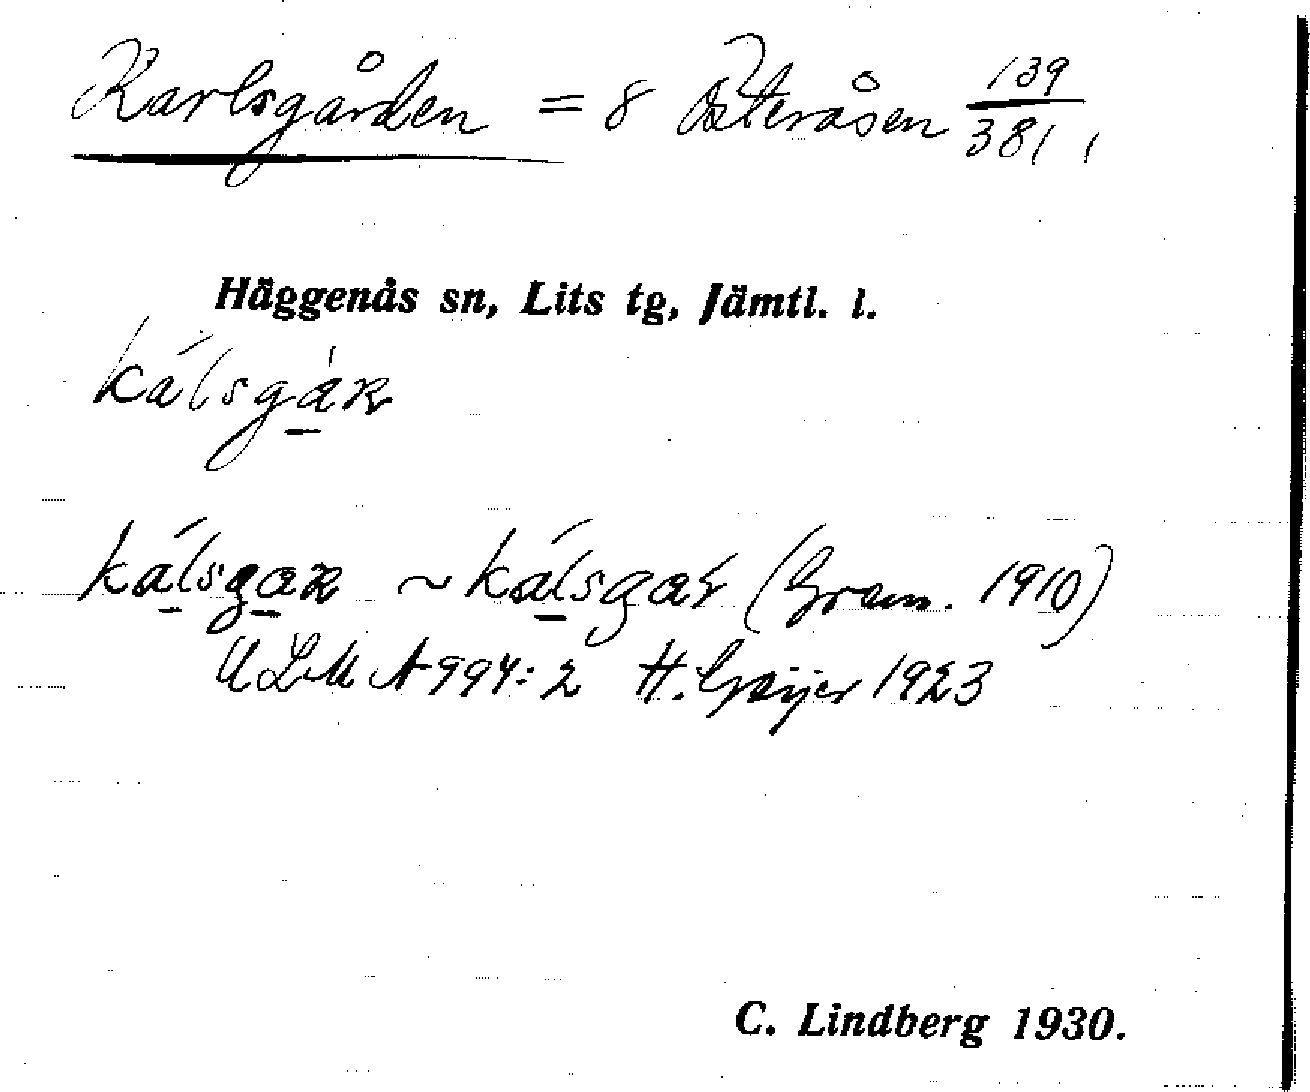 Karlsgården = 8 Österåsen 139/381,
Häggenås sn, Lits tg, Jämtl. l.
kálsga̱ʀ
ká̱lsga̱ʀ ~ ká̱lsgar (Gram. 1910)
ULMA 994:2 H. Geijer 1923
C. Lindberg 1930.